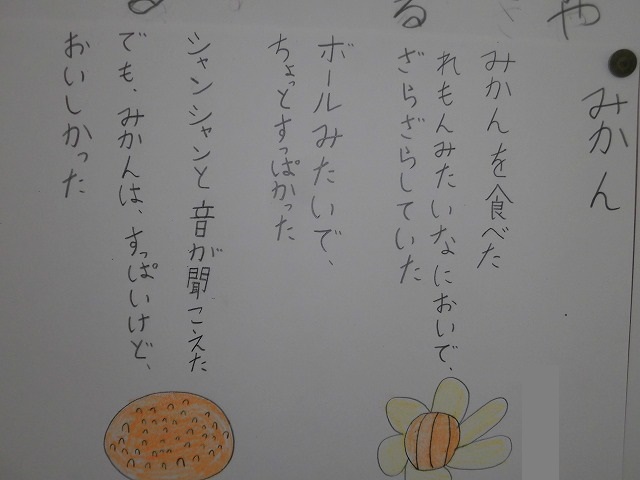 みかん
みかんを食べた
れもんみたいなにおいで、
ざらざらしていた
ボールみたいで、
ちょっとすっぱかった
シャンシャンと音が聞こえた
でも、みかんは、すっぱいけど、
おいしかった
や
る